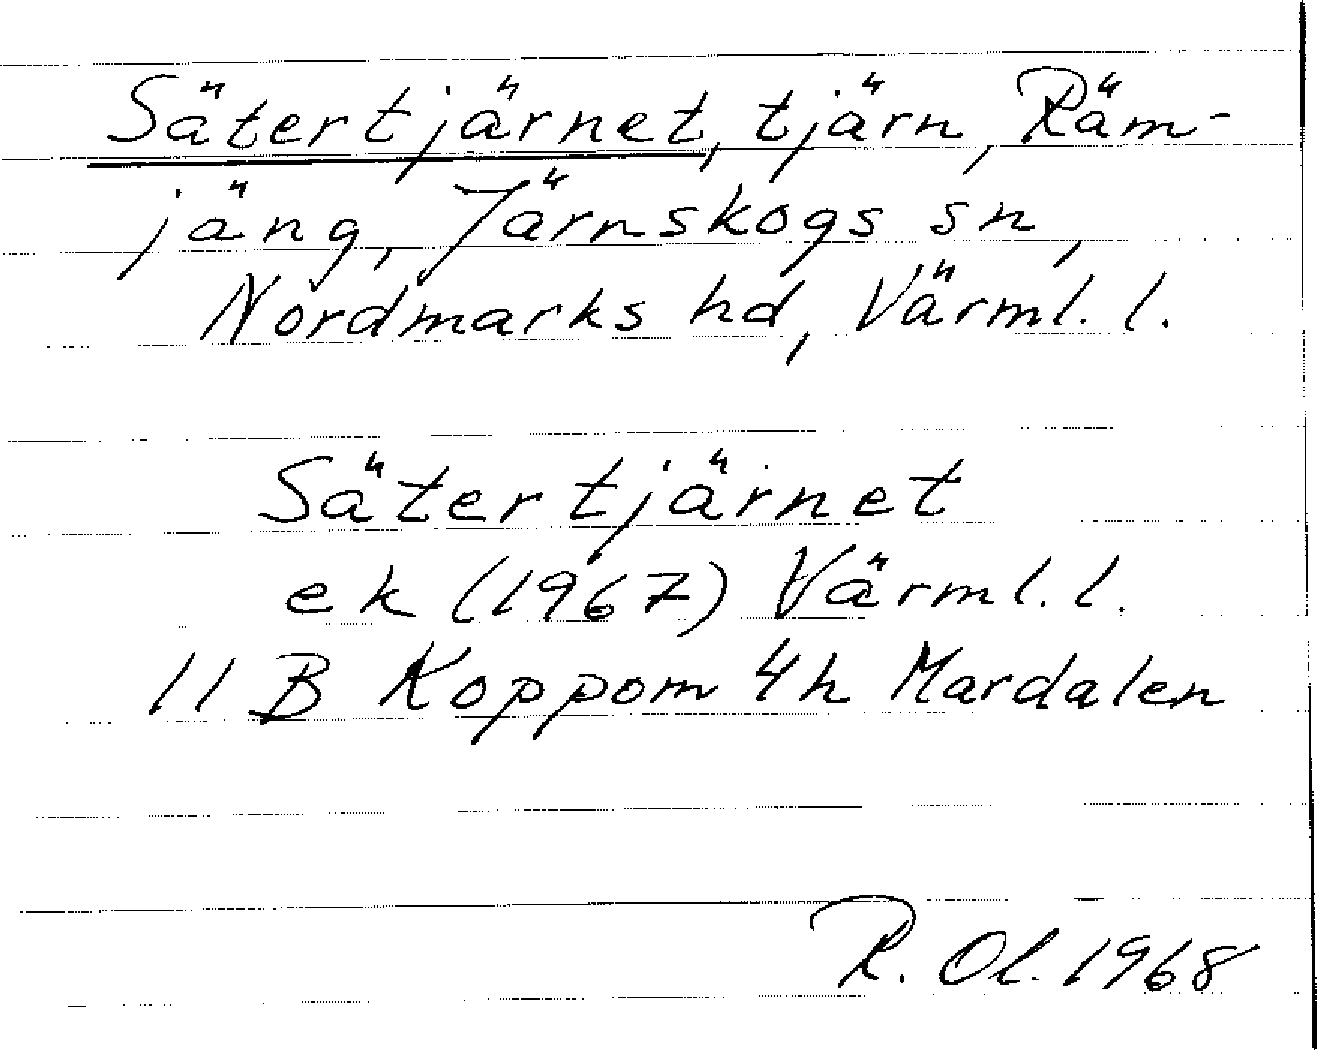 Sätertjärnet, tjärn, Räm-
jäng, Järnskogs sn,
Nordmarks hd, Värml. l.
Sätertjärnet
ek (1967) Värml. l.
11 B Koppom 4h Mardalen
R. Ol. 1968